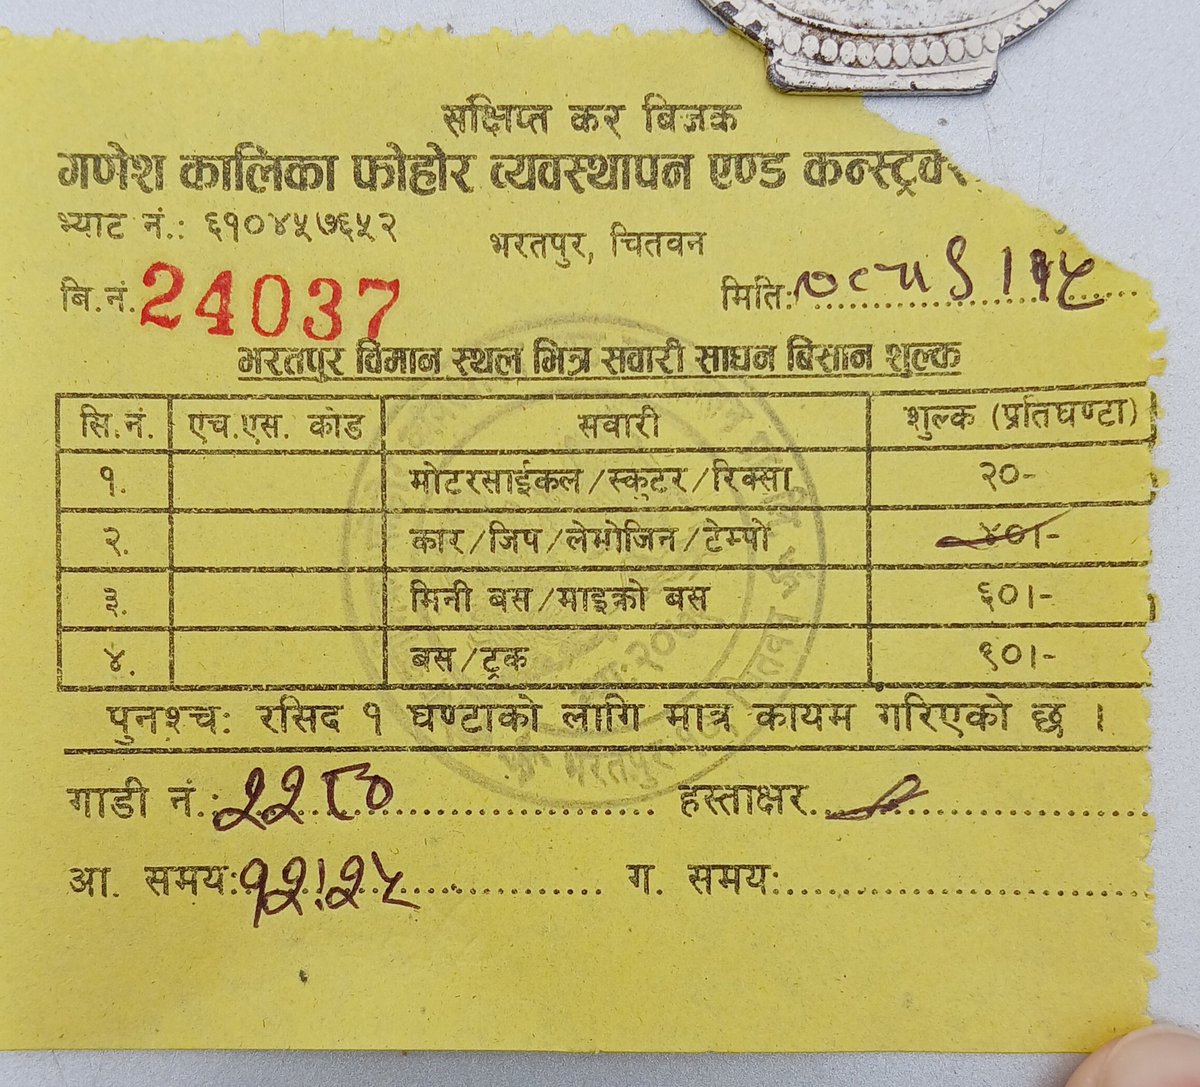 सक्षिप्त कर बिजक
गणेश कालिका फोहोर व्यवस्थापन एण्ड
भ्याट नं.: ६१०४५७६५२
भरतपुर, चितवन
बि.नं. 24037
मिति:
भरतपुर विमान स्थल भित्र सवारी साधन बिसान शुल्क
सि.नं. एच.एस. कोड सवारी शुल्क (प्रतिघण्टा)
१. मोटरसाईकल/स्कुटर/रिक्सा २०-
२. कार/जिप/लेमोजिन/टेम्पो ४०।-
३. मिनी बस/माइक्रो बस ६०।-
४. बस/ट्रक ९०।-
पुनश्च: रसिद १ घण्टाको लागि मात्र कायम गरिएको छ ।
गाडी नं.: २२८० हस्ताक्षर
आ. समय: १२।२५ ग. समय: